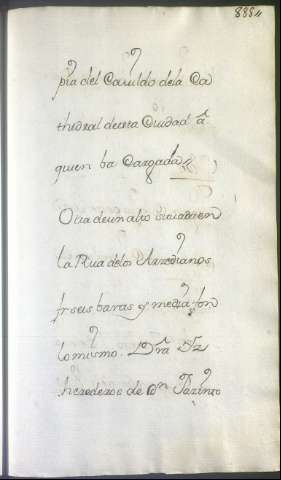 888,,
pia del Cavildo dela Ca
thedral de esta Ciudad â
quien ba Cargada,,
Otra de un alto situada en
la Rua delos Arzedianos
fr seis baras y media fon
lo mismo. Dra Yz
herederos de Dn Jazinto